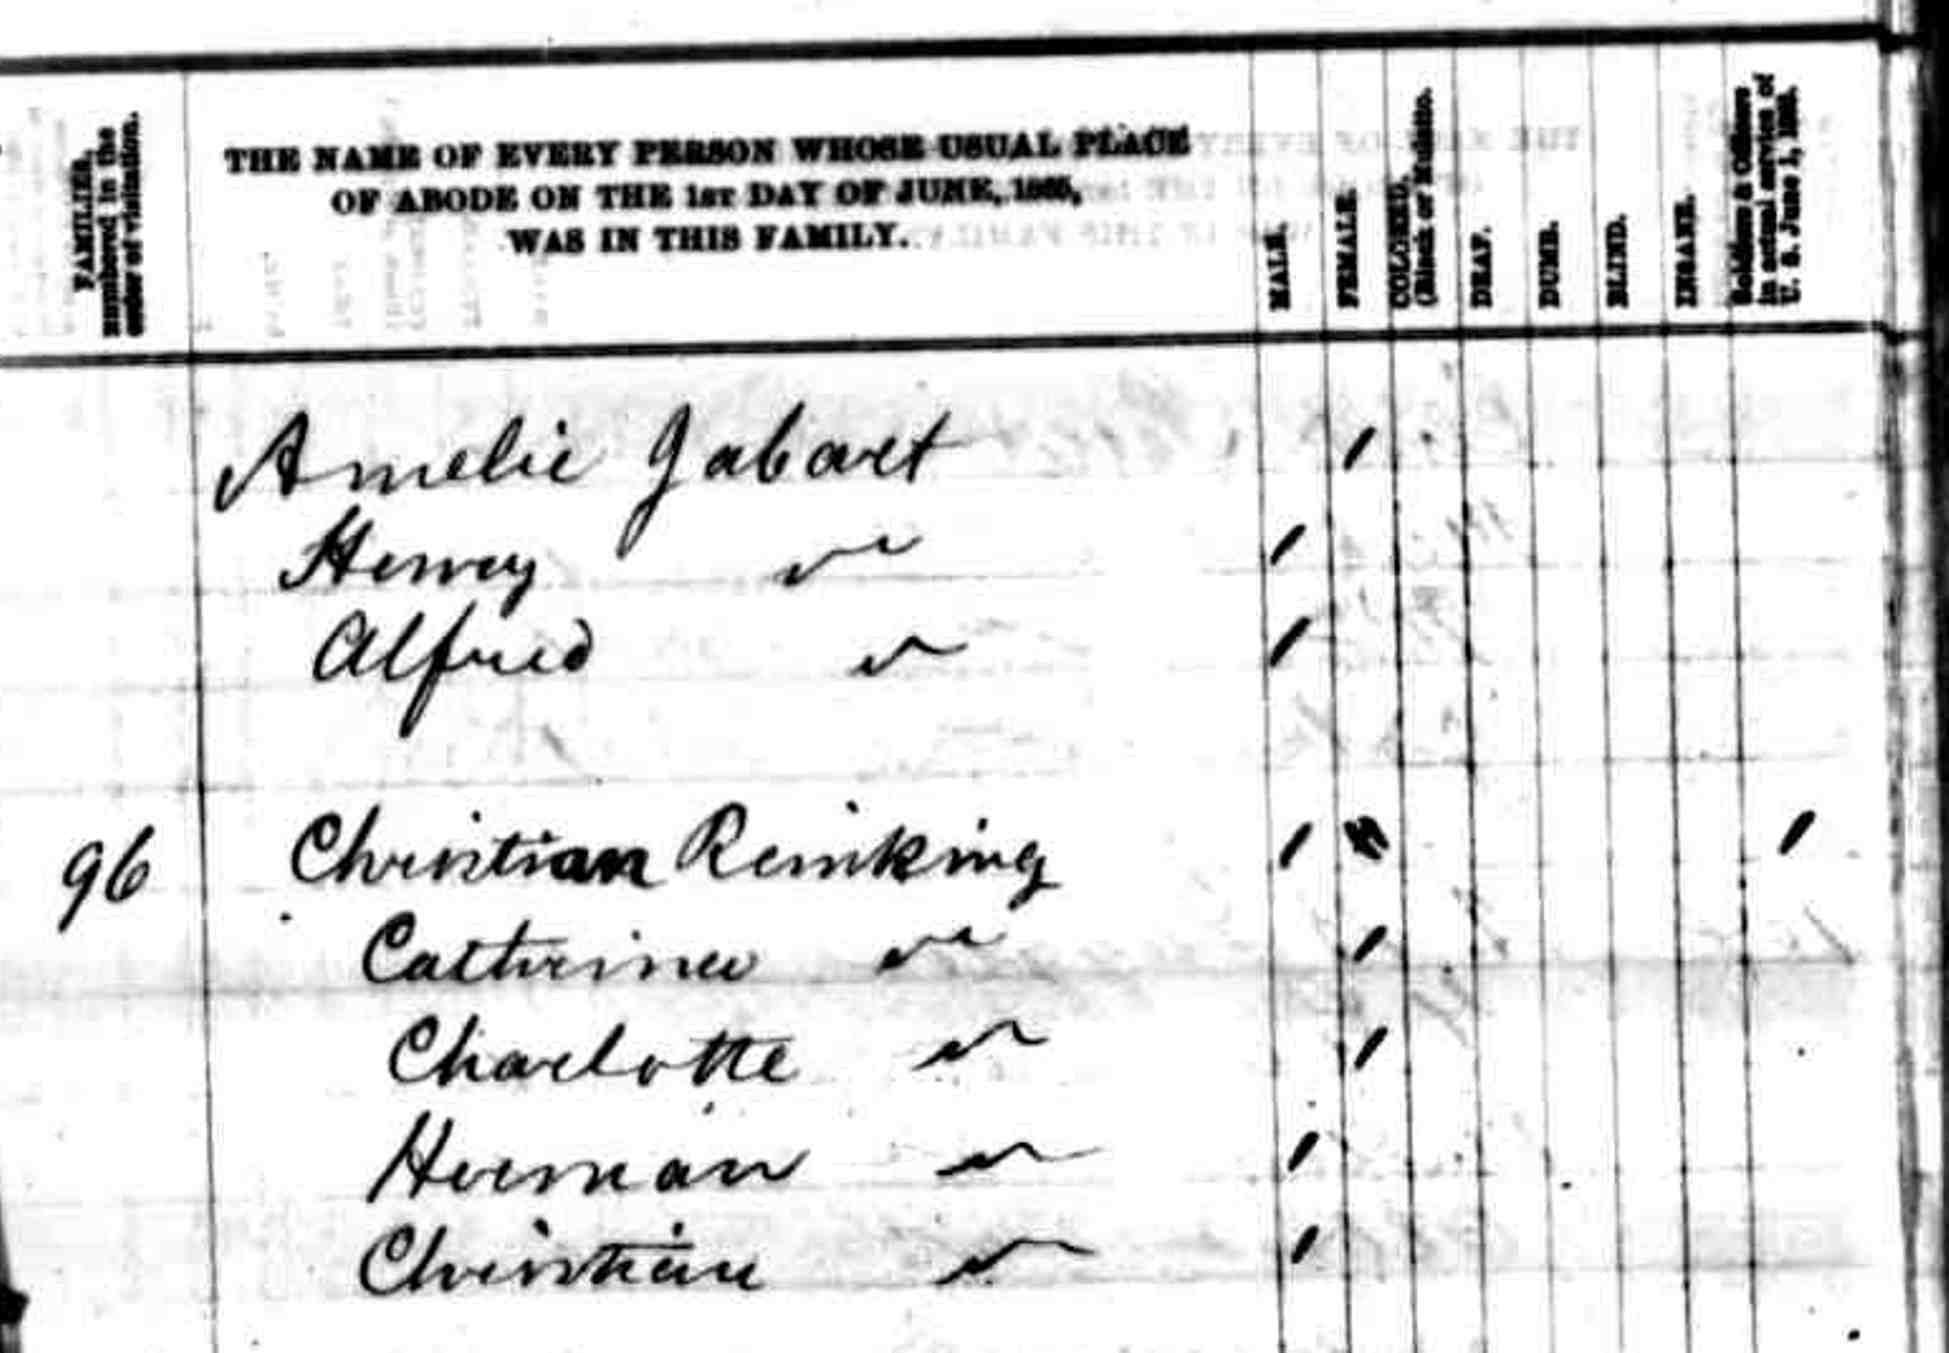 FAMILIES,
numbered in the
order of visitation.
THE NAME OF EVERY PERSON WHOSE USUAL PLACE
OF ABODE ON THE 1ST DAY OF JUNE, 1865,
WAS IN THIS FAMILY.
MALE.
FEMALE.
COLORED,
(Black or Mulatto.
DEAF.
DUMB.
BLIND.
INSANE.
Soldiers & Officers
in actual service of
U. S. June 1, 1865.
Amelie Jabart
Henrey
Alfried
96 Christian Reinking
Cathrine
Charlotte
Herman
Christian